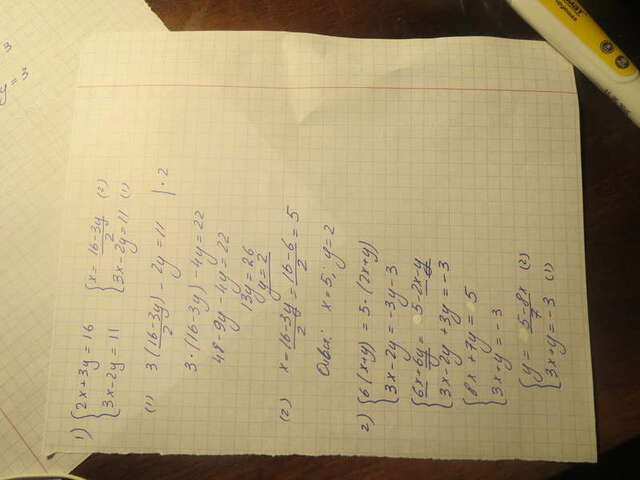 1) {2x+3y=16 {x= 16-3y/2 (2)
{3x-2y=11 {3x-2y=11 (1)
(1) 3(16-3y/2) - 2y = 11 | · 2
3·(16-3y)-4y=22
48-9y-4y=22
13y=26
y=2
(2) x= 16-3y/2 = 16-6/2 = 5
Ответ: x=5; y=2
2) {6(x+y) = 5-(2x+y)
{3x-2y=-3y-3
{6x+6y = 5-2x-y
{3x-2y+3y=-3
{8x+7y= 5
{3x+y=-3
{y= 5-8x/7 (2)
{3x+y=-3 (1)